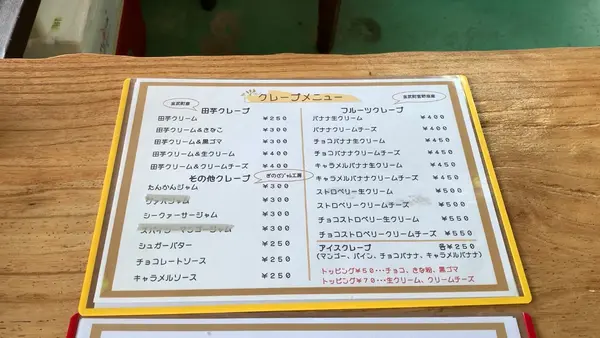 クレープメニュー
金武町産
田芋クレープ
田芋クリーム ¥250
田芋クリーム&きなこ ¥300
田芋クリーム&黒ゴマ ¥300
田芋クリーム&生クリーム ¥400
田芋クリーム&クリームチーズ ¥400
その他クレープ
ぎのざジャム工房
たんかんジャム ¥300
グァバジャム ¥300
シークァーサージャム ¥300
スパイシーマンゴージャム ¥300
シュガーバター ¥250
チョコレートソース ¥250
キャラメルソース ¥250
フルーツクレープ
バナナ生クリーム ¥400
バナナクリームチーズ ¥400
チョコバナナ生クリーム ¥450
チョコバナナクリームチーズ ¥450
キャラメルバナナ生クリーム ¥450
キャラメルバナナクリームチーズ ¥450
ストロベリー生クリーム ¥500
ストロベリークリームチーズ ¥500
チョコストロベリー生クリーム ¥550
チョコストロベリークリームチーズ ¥550
アイスクレープ 各¥250
(マンゴー、パイン、チョコバナナ、キャラメルバナナ)
トッピング¥50・・・チョコ、きな粉、黒ゴマ
トッピング¥70・・・生クリーム、クリームチーズ